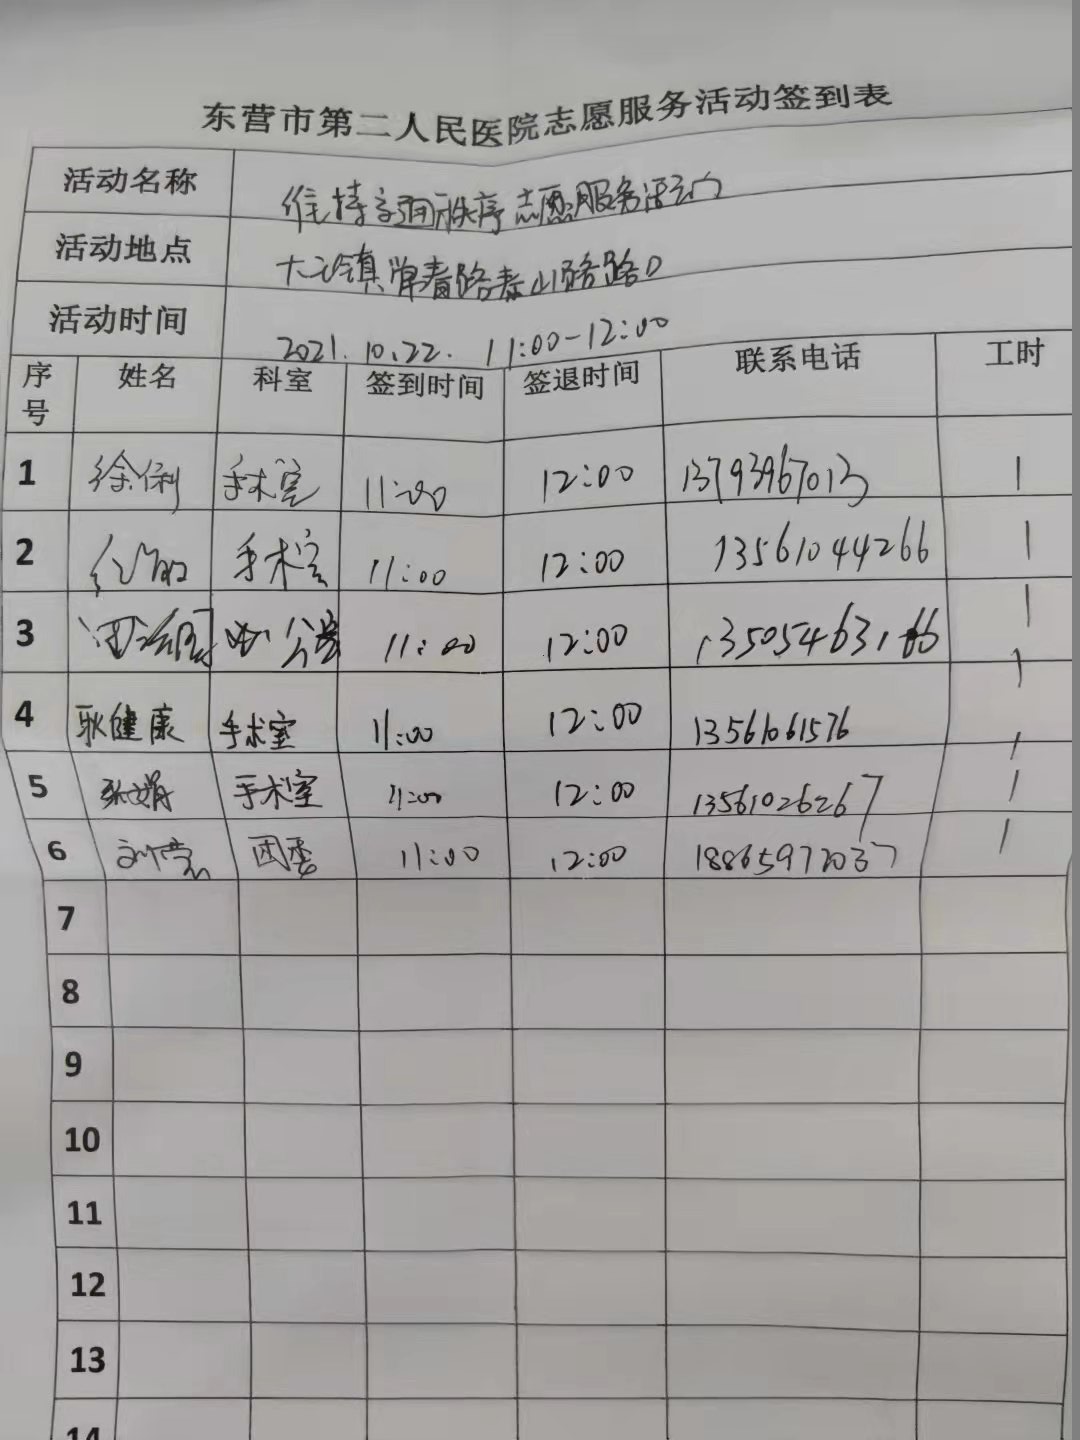 东营市第二人民医院志愿服务活动签到表
活动名称 维持交通秩序志愿服务活动
活动地点 大王镇潍高路泰山路路口
活动时间 2021.10.22. 11:00-12:00
序号 姓名 科室 签到时间 签退时间 联系电话 工时
1 徐俐 手术室 11:00 12:00 13793967013 1
2 手术室 11:00 12:00 13561044266 1
3 办公室 11:00 12:00 13505463166 1
4 耿健康 手术室 11:00 12:00 13561061576 1
5 张娟 手术室 11:00 12:00 13561026267 1
6 团委 11:00 12:00 18865972037 1
7
8
9
10
11
12
13
14